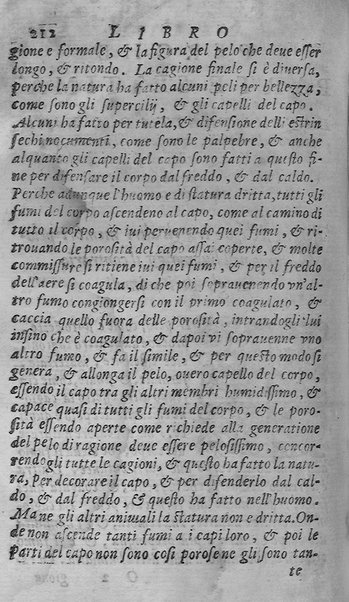 212 LIBRO
gione e formale, & la figura del pelo che deue esser
longo, & ritondo. La cagione finale si è diuersa,
perche la natura ha fatto alcuni peli per bellezza,
come sono gli supercilij, & gli capelli del capo.
Alcuni ha fatto per tutela, & difensione delli estrin
sechi nocumenti, come sono le palpebre, & anche
alquanto gli capelli del capo sono fatti a questo fi-
ne per difensare il corpo dal freddo, & dal caldo.
Perche adunque l'huomo e di statura dritta, tutti gli
fumi del corpo ascendeno al capo, come al camino di
tutto il corpo, & iui peruenendo quei fumi, & ri-
trouando le porosità del capo assai coperte, & molte
commissure si ritiene iui quei fumi, & per il freddo
dell'aere si coagula, di che poi soprauenendo vn'al-
tro fumo congiongersi con il primo coagulato, &
caccia quello fuora delle porosità, intrandogli lui
insino che è coagulato, & dapoi vi soprauenne vno
altro fumo, & fa il simile, & per questo modo si
genera, & allonga il pelo, ouero capello del corpo,
essendo il capo tra gli altri membri humidissimo, &
capace quasi di tutti gli fumi del corpo, & le poro-
sità essendo aperte come richiede alla generatione
del pelo di ragione deue essere pelosissimo, concor-
rendogli tutte le cagioni, & questo ha fatto la natu-
ra, Per decorare il capo, & per difenderlo dal cal-
do, & dal freddo, & questo ha fatto nell'huomo.
Ma ne gli altri animali la statura non e dritta. On-
de non ascende tanti fumi a i capi loro, & poi le
Parti del capo non sono cosi porose ne gli sono tan-
te